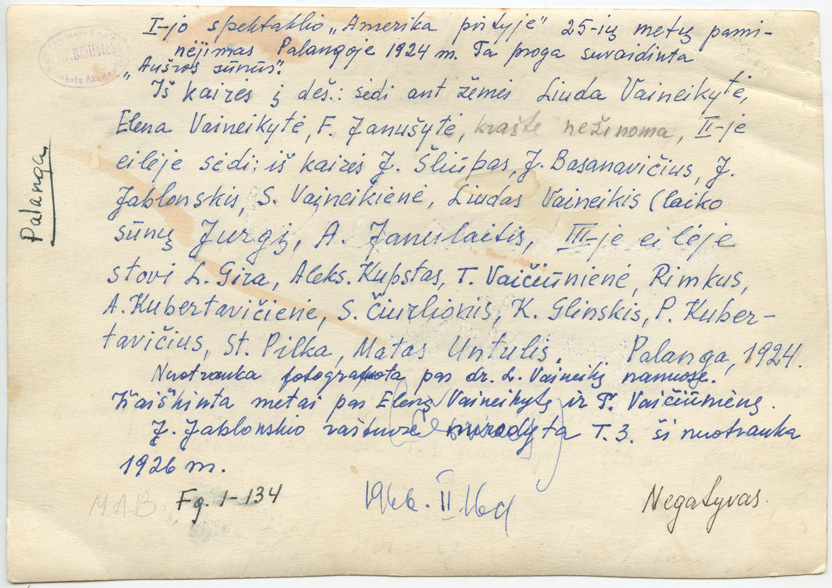 I-jo spektaklio „Amerika pirtyje" 25-ių metų pami-
nėjimas Palangoje 1924 m. Ta proga suvaidinta
„Aušros sūnūs".
Iš kairės į deš.: sėdi ant žemės Liuda Vaineikytė,
Elena Vaineikytė, F. Janušytė, krašte nežinoma, II-je
eilėje sėdi: iš kairės J. Šliūpas, J. Basanavičius, J.
Jablonskis, S. Vaineikienė, Liudas Vaineikis (laiko
sūnų Jurgį, A. Janulaitis, III-je eilėje
stovi L. Gira, Aleks. Kupstas, T. Vaičiūnienė, Rimkus,
A. Kubertavičienė, S. Čiurlionis, K. Glinskis, P. Kuber-
tavičius, St. Pilka, Matas Untulis. Palanga, 1924.
Nuotrauka fotografuota pas dr. L. Vaineikį namuose.
Išaiškinta metai pas Eleną Vaineikytę ir T. Vaičiūnienę.
J. Jablonskio raštuose nurodyta T. 3. ši nuotrauka
1926 m.
Palanga
MAB Fg. 1-134
1966.II.16d
Negatyvas.